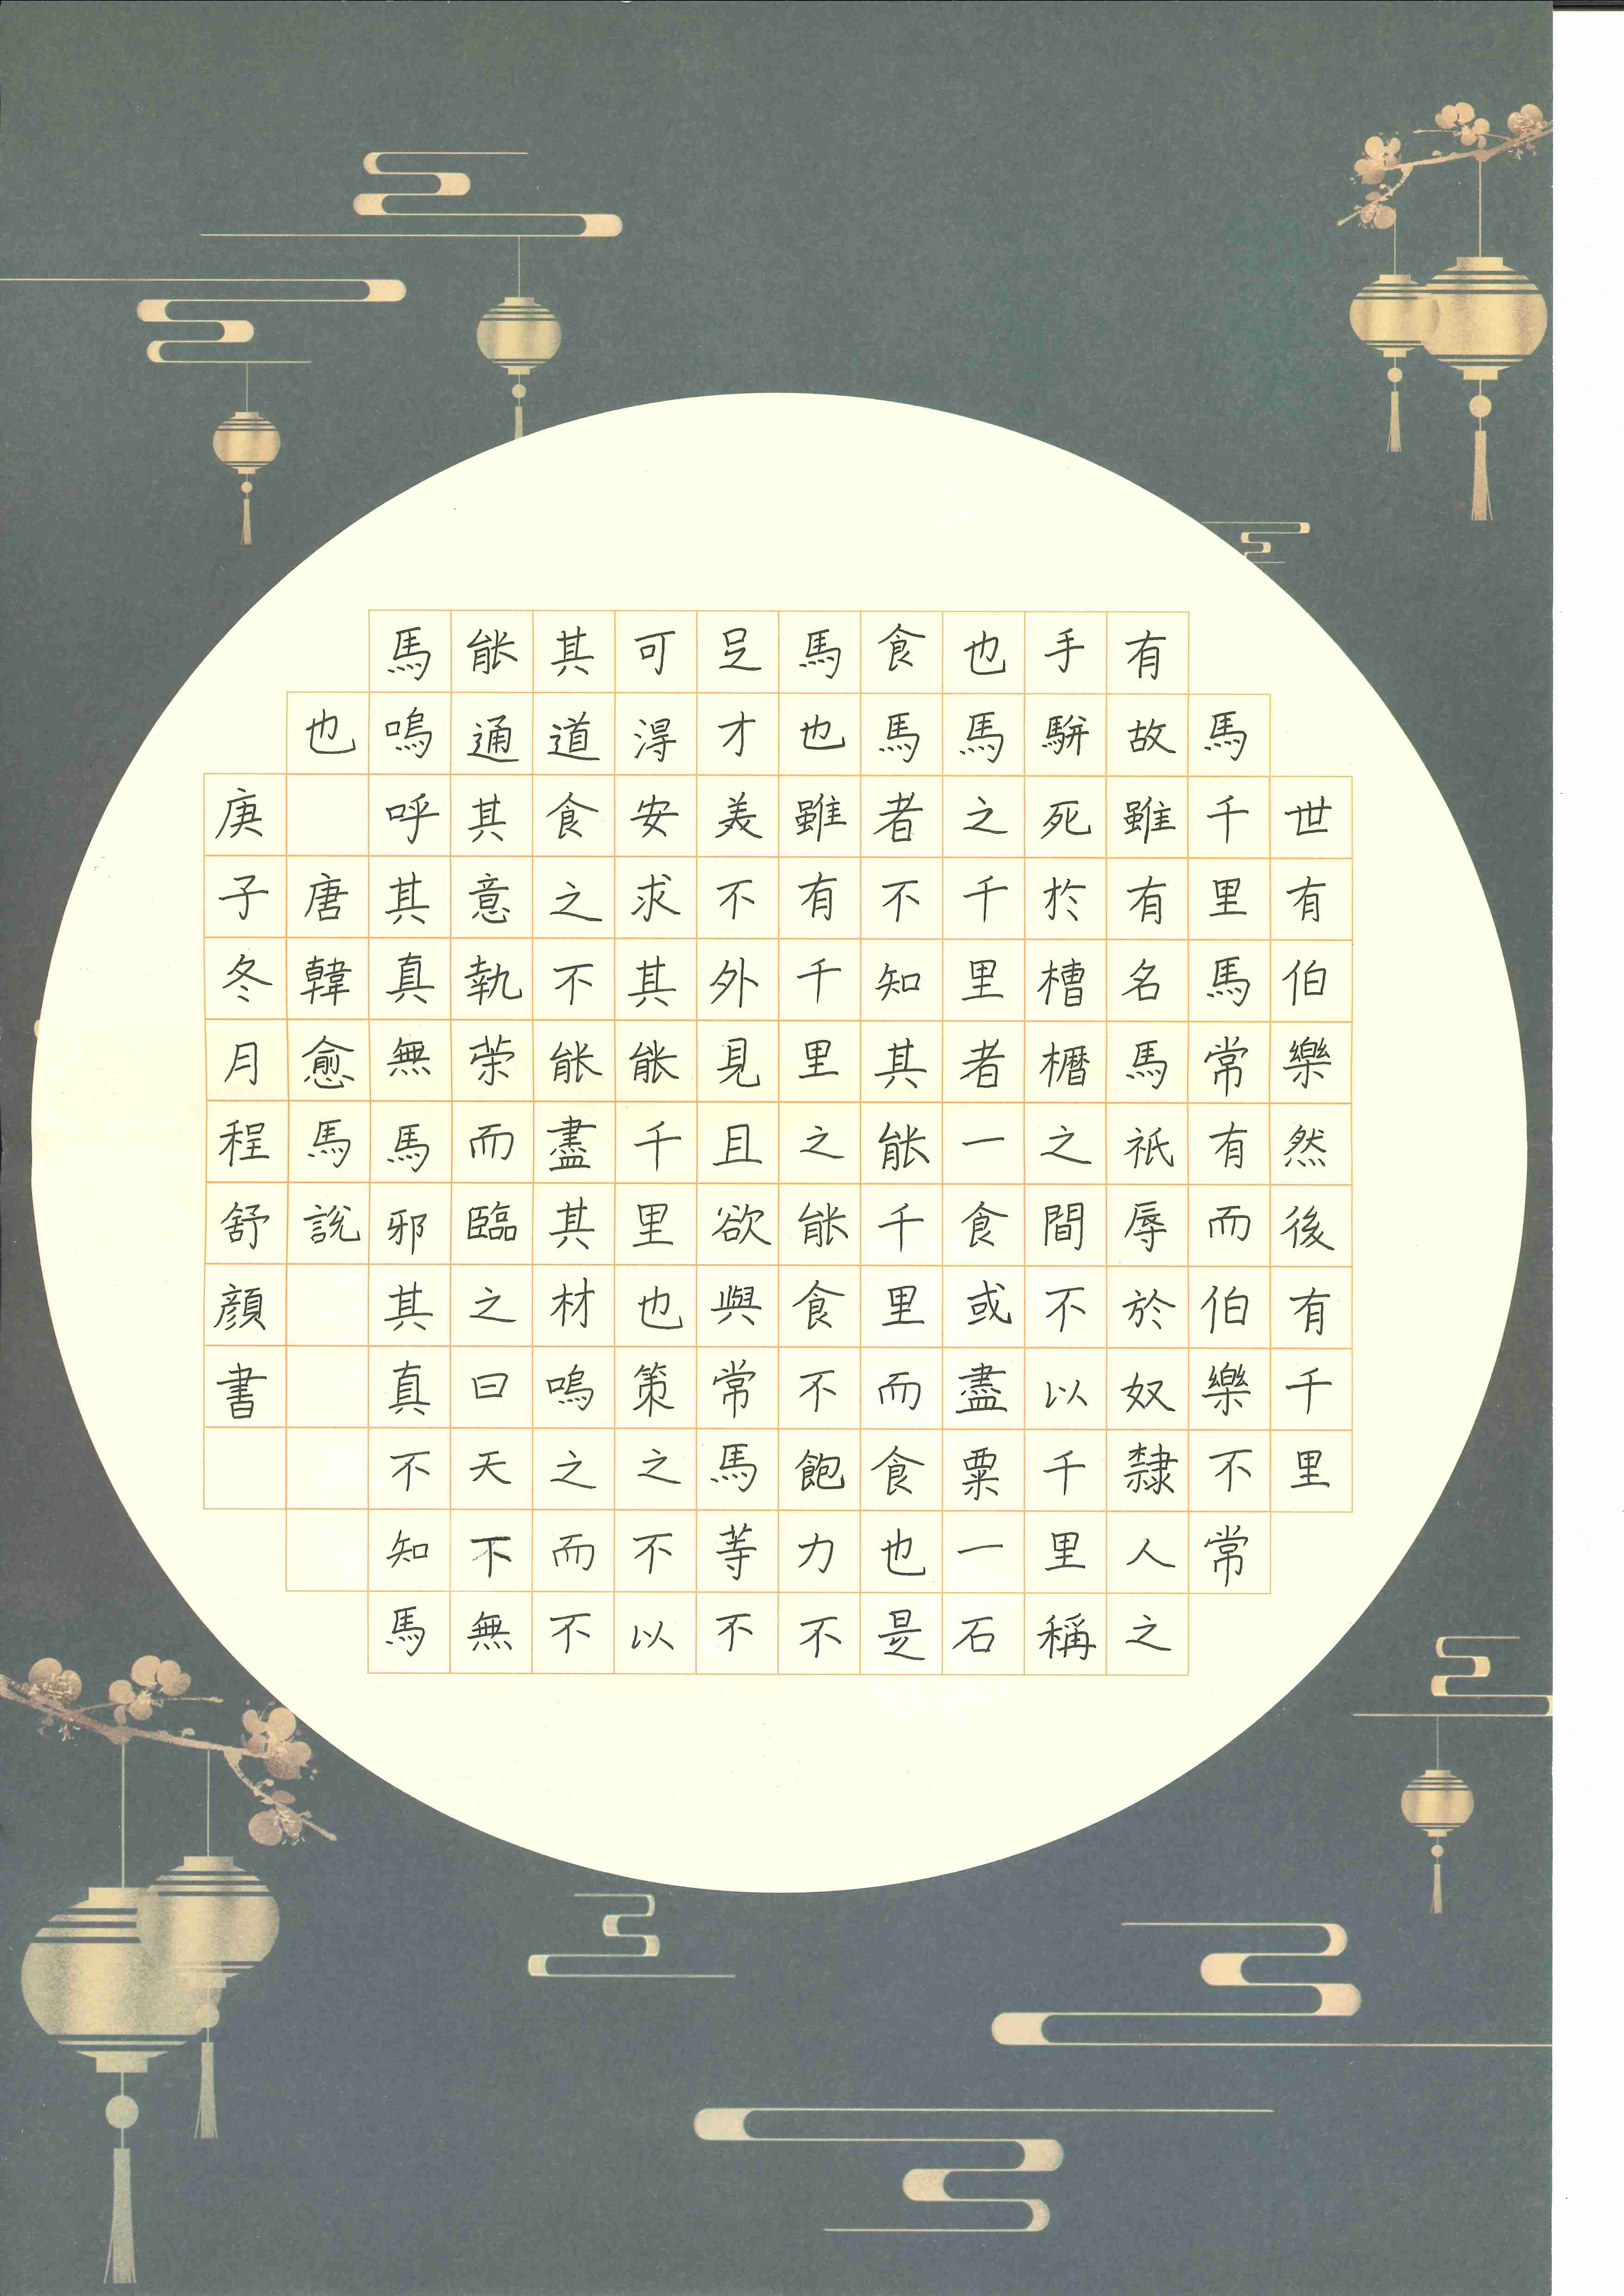 世有伯樂然後有千里
馬千里馬常有而伯樂不常
有故雖有名馬祇辱於奴隸人之
手駢死於槽櫪之間不以千里稱
也馬之千里者一食或盡粟一石
食馬者不知其能千里而食也是
馬也雖有千里之能食不飽力不
足才美不外見且欲與常馬等不
可得安求其能千里也策之不以
其道食之不能盡其材嗚之而不
能通其意執茦而臨之曰天下無
馬嗚呼其真無馬邪其真不知馬
也 唐韓愈馬說
庚子冬月程舒顔書